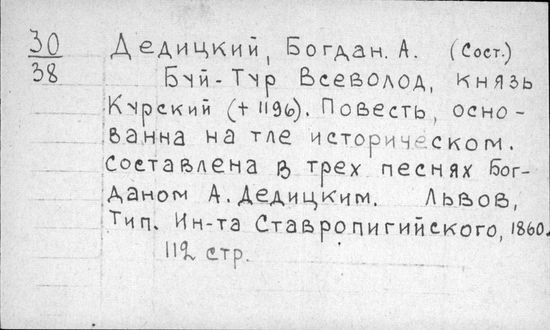 30 Дедицкий, Богдан. А. (Сост.)
38 Буй-Тур Всеволод, князь
Курский (+ 1196). Повесть, осно-
ванна на тле историческом.
Составлена в трех песнях Бог-
даном А. Дедицким. Львов,
Тип. Ин-та Ставропигийского, 1860.
112 стр.